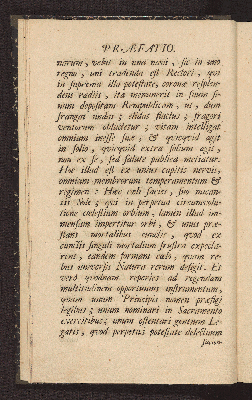 PRÆFATIO.
narum, velut in una navi, sic in uno
regno, uni tradenda est Rectori, qui
in suprema illa potestate, coronæ resplen-
dens radiis, ita meminerit in suum si-
num depositam Rempublicam, ut, dum
frangat undas; elidat fluctus; fragori
ventorum obluctetur; vitam intelligat
omnium inesse suæ, & quicquid agit
in solio, quicquid extra solium agit,
non ex se, sed salute publica metiatur.
Hæc illud est ex unius capitis nervis,
omnium membrorum temperamentum &
regimen: Hæc cæli facies, suo nitentis
Sole; qui in perpetua circumvolu-
tione cælestium orbium, lumen illud im-
mensum impertitur orbi, & unus præ-
stans mortalibus, quod ex
cunctis singuli mortalium frustra expecta-
rent, eandem formam cælo, quam re-
bus universis Natura rerum assignat. Et
vero quidnam reperies ad regendam
multitudinem opportunius instrumentum,
quam unum Principis nomen præfigi
legibus; unum nominari in Sacramento
exercitibus; unum ostentari gentium Le-
gatis, quod perpetua potestate delectum